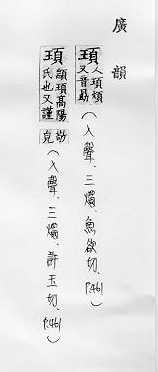 廣韻
頊 人項頊 又音勗 (入聲、三燭、魚欲切、P.461)
頊 顓頊高陽 氏也又謹 (入聲、三燭、許玉切、P.461)